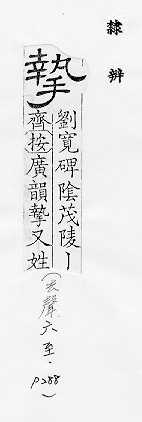 隸辨
摯
劉寬碑陰茂陵丨
齊按廣韻摯又姓
(去聲六至·p288)